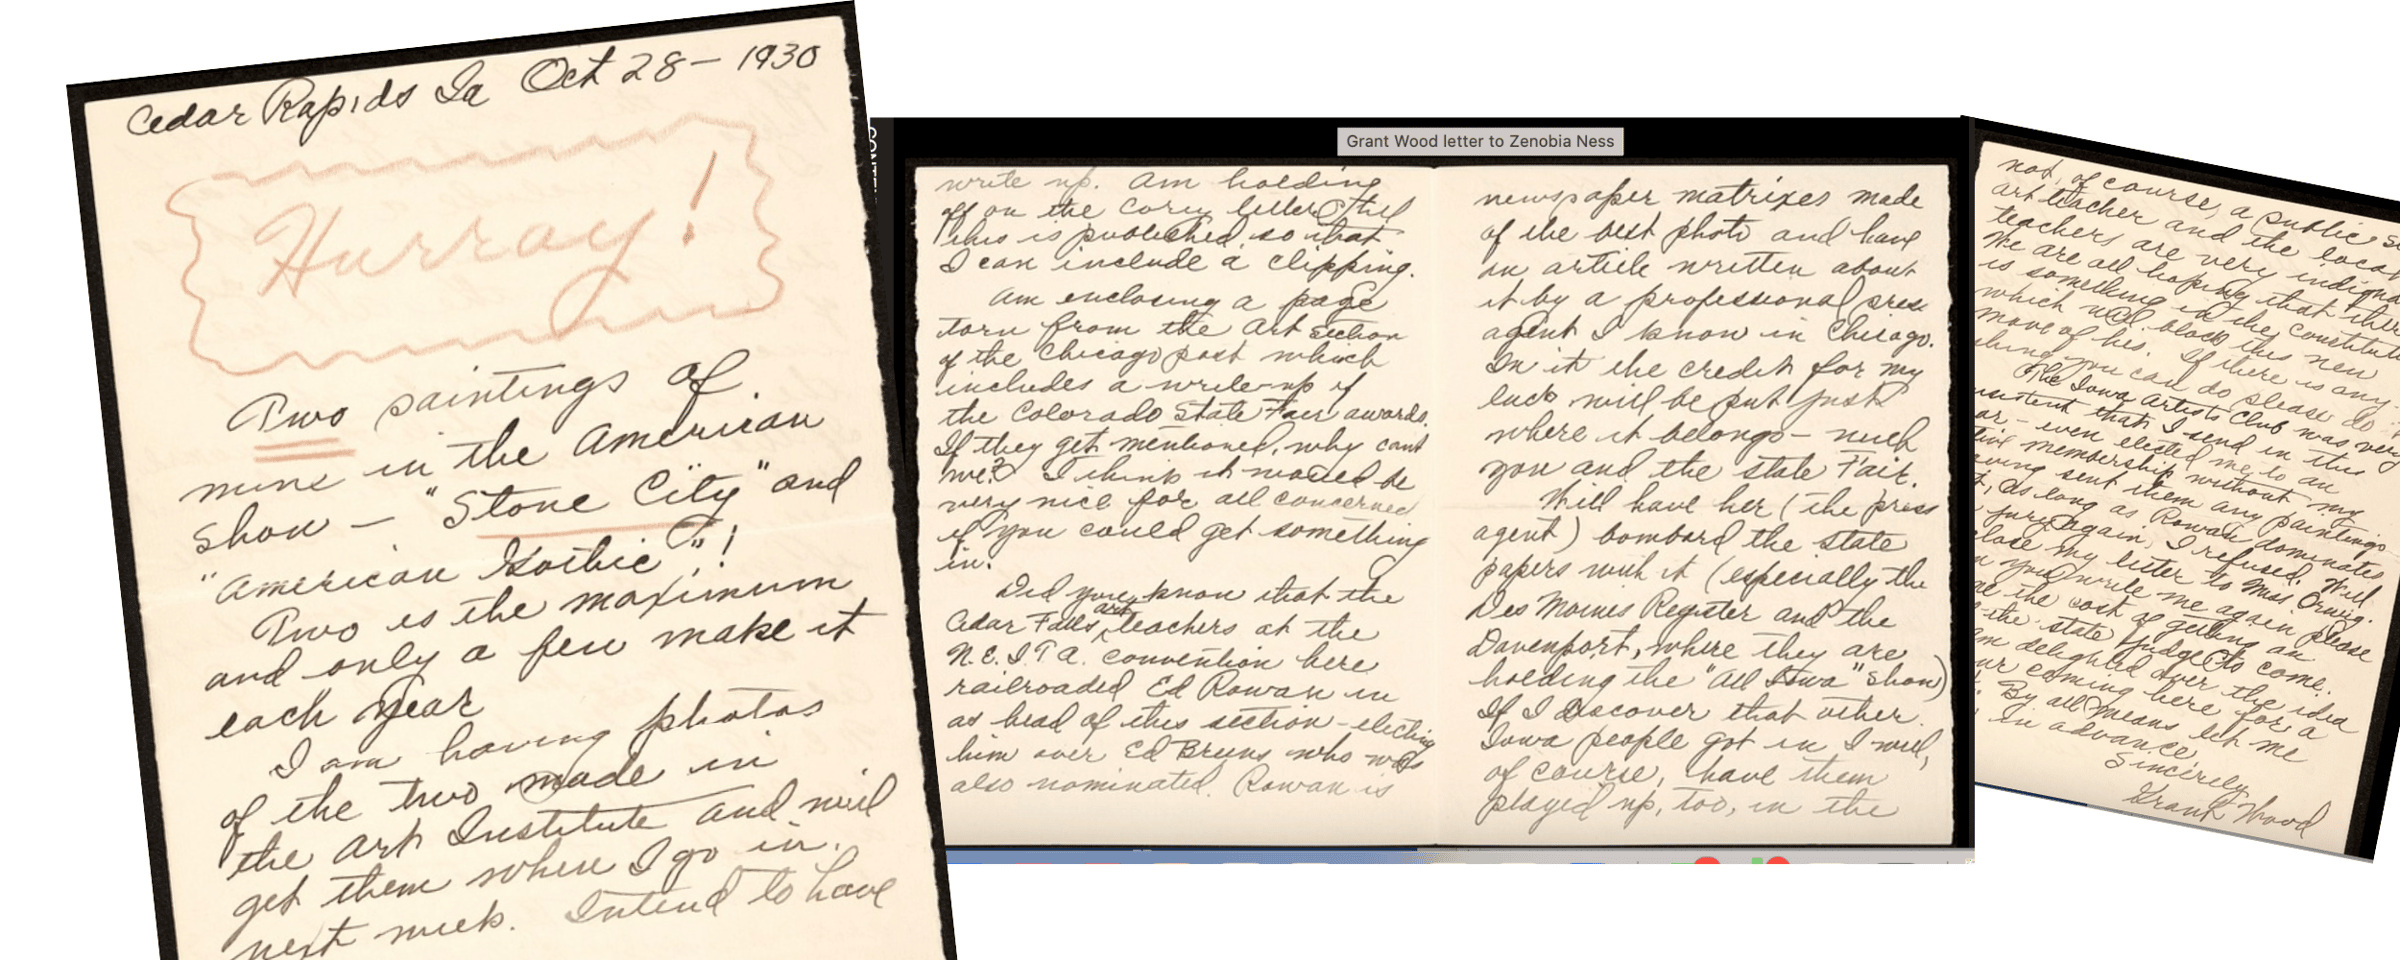 Cedar Rapids Ia Oct 28 – 1930
Hurray!
Two paintings of
mine in the American
show – "Stone City" and
"American Gothic"!
Two is the maximum
and only a few make it
each year
I am having photos
of the two made in
the Art Institute and will
get them when I go in
next week. Intend to have
Grant Wood letter to Zenobia Ness
write up. Am holding
off on the Corey letter till
this is published, so that
I can include a clipping.
Am enclosing a page
torn from the Art Section
of the Chicago post which
includes a write-up of
the Colorado State Fair awards.
If they get mentioned, why cant
we? I think it would be
very nice for all concerned
if you could get something
in.
Did you know that the
Cedar Falls art teachers at the
N.E.I.T.A. convention here
railroaded Ed Rowan in
as head of this section – electing
him over Ed Bruns who was
also nominated. Rowan is
newspaper matrixes made
of the best photo and have
an article written about
it by a professional press
agent I know in Chicago.
In it the credit for my
luck will be put just
where it belongs – with
you and the state Fair.
Will have her (the press
agent) bombard the state
papers with it (especially the
Des Moines Register and the
Davenport, where they are
holding the "All Iowa" show)
If I discover that other
Iowa people got in I will,
of course, have them
played up, too, in the
not, of course, a public
art teacher and the local
teachers are very
We are all hoping that
is something in the
which will block this new
move of his. If there is any-
thing you can do please do
The Iowa Artists Club was very
that I send in this
– even elected me to an
membership without my
having sent them any paintings
as long as Rowan dominates
jury again, I refused. Will
my letter to Mrs. Orwig.
you write me again please
me the cost of getting an
the state judge to come.
delighted over the idea
coming here for a
By all means let me
in advance
Sincerely
Grant Wood